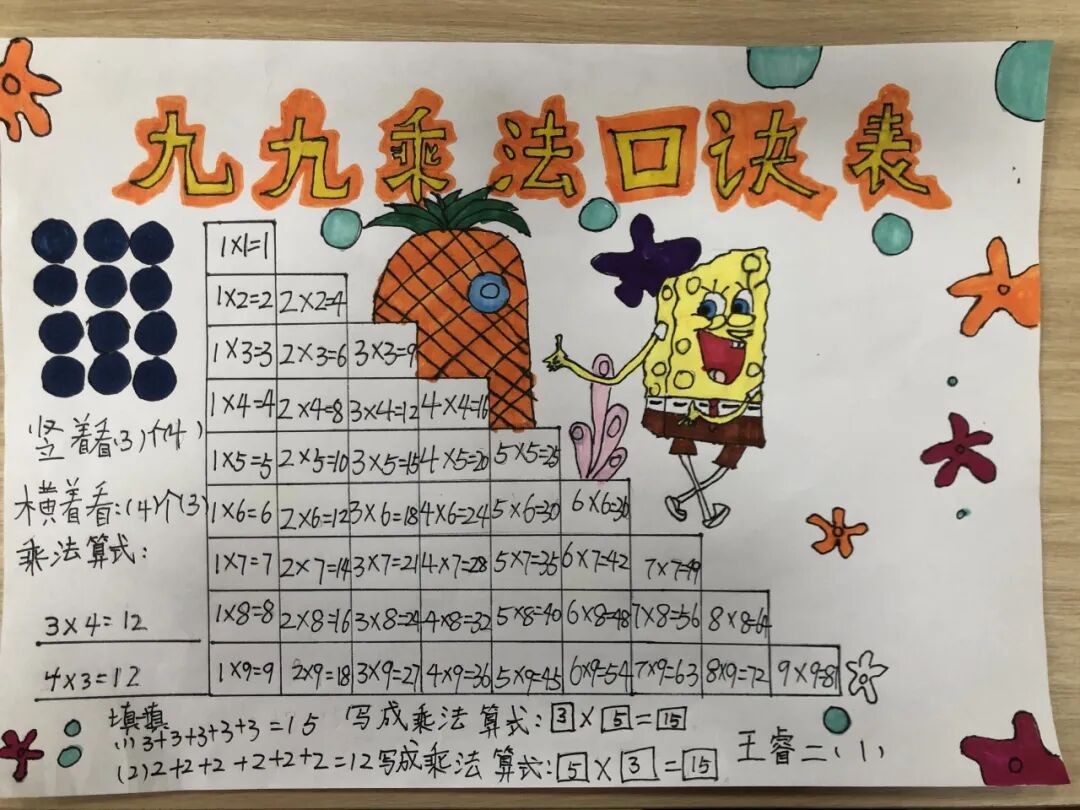 九九乘法口诀表
1×1=1
1×2=2 2×2=4
1×3=3 2×3=6 3×3=9
1×4=4 2×4=8 3×4=12 4×4=16
1×5=5 2×5=10 3×5=15 4×5=20 5×5=25
1×6=6 2×6=12 3×6=18 4×6=24 5×6=30 6×6=36
1×7=7 2×7=14 3×7=21 4×7=28 5×7=35 6×7=42 7×7=49
1×8=8 2×8=16 3×8=24 4×8=32 5×8=40 6×8=48 7×8=56 8×8=64
1×9=9 2×9=18 3×9=27 4×9=36 5×9=45 6×9=54 7×9=63 8×9=72 9×9=81
竖着看:(3)个(4)
横着看:(4)个(3)
乘法算式:
3×4=12
4×3=12
填填
(1)3+3+3+3+3=15 写成乘法算式:3×5=15
(2)2+2+2+2+2+2=12写成乘法算式:5×3=15
王睿二(1)